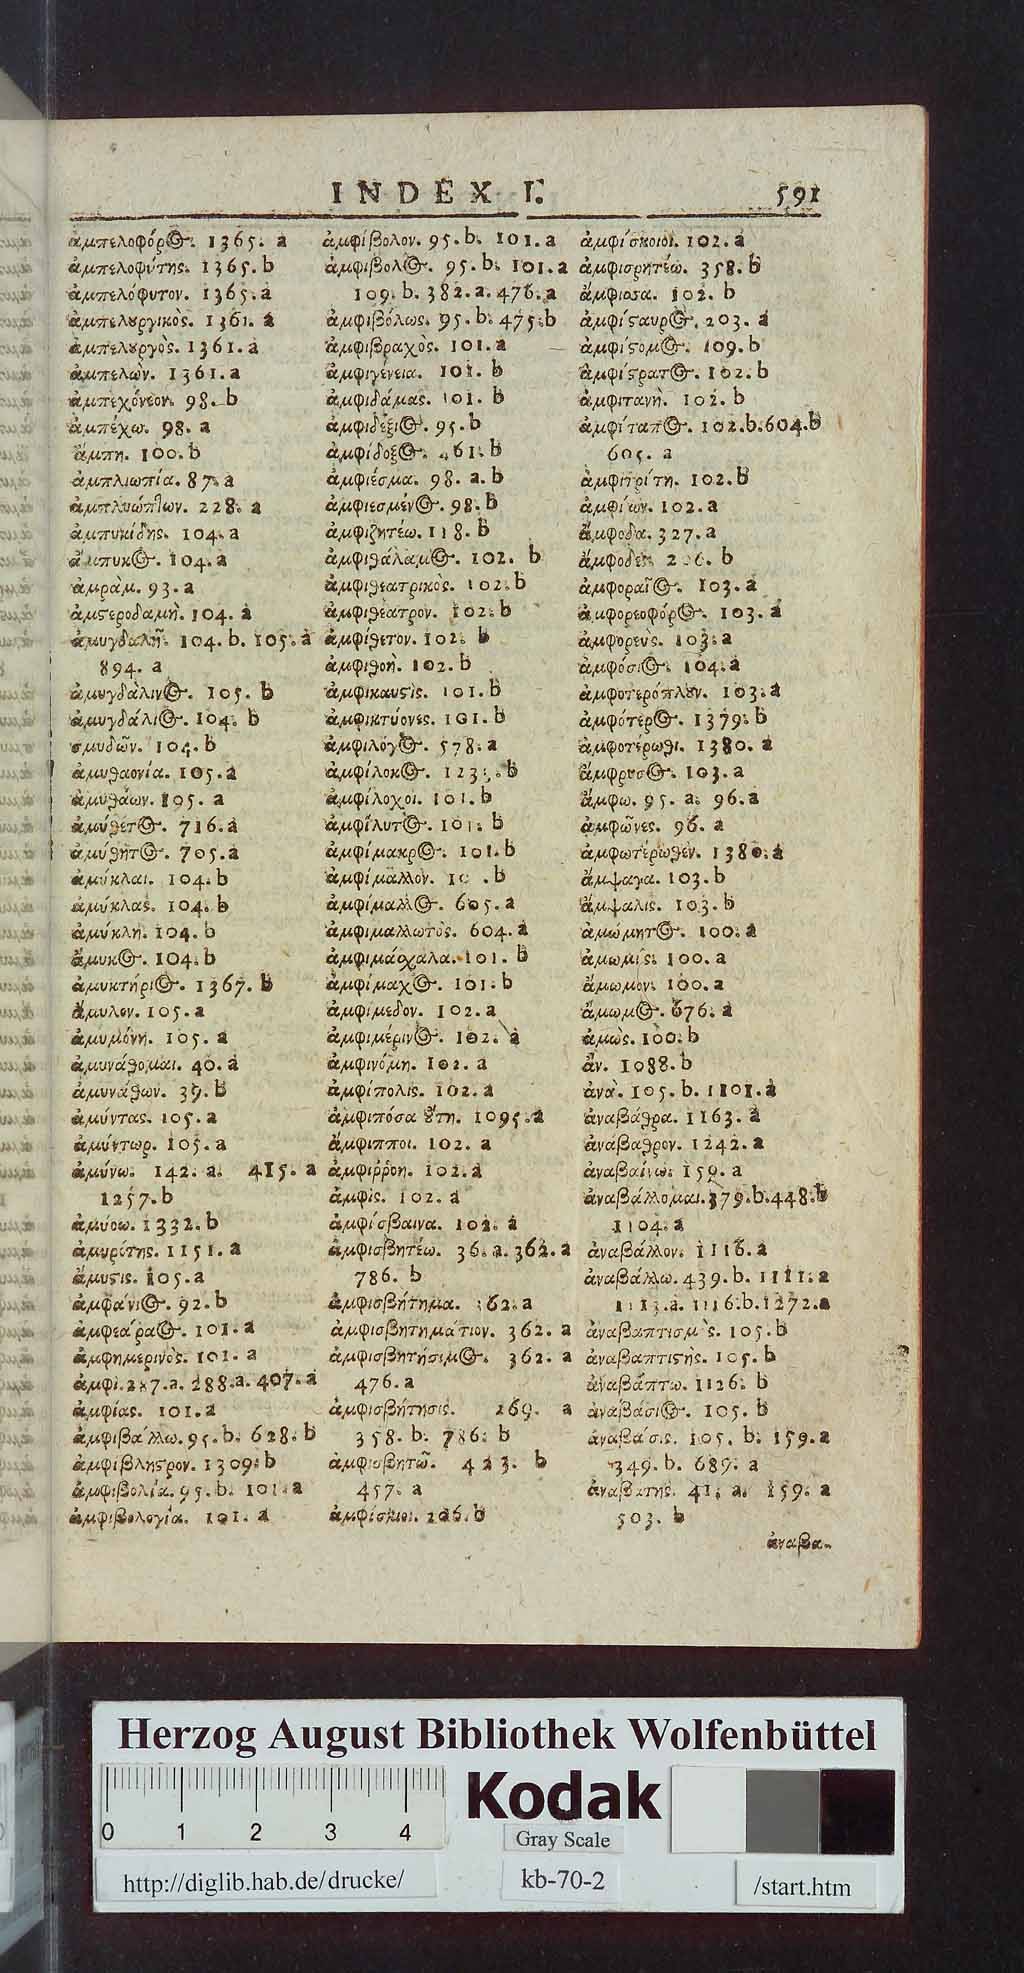 INDEX I. 591
ἀμπελοφόρος. 1365. a
ἀμπελοφύτης. 1365. b
ἀμπελόφυτον. 1365. a
ἀμπελουργικὸς. 1361. a
ἀμπελουργὸς. 1361. a
ἀμπελὼν. 1361. a
ἀμπεχόνεον. 98. b
ἀμπέχω. 98. a
ἄμπη. 100. b
ἀμπλιωπία. 87. a
228. a
ἀμπυκίδης. 104. a
ἄμπυκος. 104. a
ἀμρὰμ. 93. a
ἀμστεροδαμὴ. 104. a
ἀμυγδαλῆ. 104. b. 105. a
894. a
ἀμυγδάλινος. 105. b
ἀμυγδάλιος. 104. b
σμυδῶν. 104. b
ἀμυθαονία. 105. a
ἀμυθάων. 105. a
ἀμύθετος. 716. a
ἀμύθητος. 705. a
ἀμύκλαι. 104. b
ἀμύκλας. 104. b
ἀμύκλη. 104. b
ἄμυκος. 104. b
ἀμυκτήριος. 1367. b
ἄμυλον. 105. a
ἀμυμόνη. 105. a
ἀμυνάθομαι. 40. a
ἀμυνάθων. 39. b
ἀμύντας. 105. a
ἀμύντωρ. 105. a
ἀμύνω. 142. a. 415. a
1257. b
ἀμύσω. 1332. b
ἀμυρίτης. 1151. a
ἄμυστις. 105. a
ἀμφάνιος. 92. b
ἀμφεάραος. 101. a
ἀμφημερινὸς. 101. a
ἀμφὶ. 287. a. 288. a. 407. a
ἀμφίας. 101. a
ἀμφιβάλλω. 95. b. 628. b
ἀμφίβληστρον. 1309. b
ἀμφιβολία. 95. b. 101. a
ἀμφιβολογία. 101. a
ἀμφίβολον. 95. b. 101. a
ἀμφίβολος. 95. b. 101. a
109. b. 382. a. 476. a
ἀμφιβόλως. 95. b. 475. b
ἀμφιβραχὸς. 101. a
ἀμφιγένεια. 101. b
ἀμφιδάμας. 101. b
ἀμφιδέξιος. 95. b
ἀμφίδοξος. 461. b
ἀμφιέσμα. 98. a. b
ἀμφιεσμένος. 98. b
ἀμφιζητέω. 118. b
ἀμφιθάλαμος. 102. b
ἀμφιθεατρικὸς. 102. b
ἀμφιθέατρον. 102. b
ἀμφίθετον. 102. b
ἀμφιθοὴ. 102. b
ἀμφικαυστις. 101. b
ἀμφικτύονες. 101. b
ἀμφιλόγος. 578. a
ἀμφίλοκος. b
ἀμφίλοχοι. 101. b
ἀμφίλυτος. 101. b
ἀμφίμακρος. 101. b
ἀμφίμαλλον. b
ἀμφίμαλλος. 605. a
ἀμφιμαλλωτὸς. 604. a
ἀμφιμάσχαλα. 101. b
ἀμφίμαχος. 101. b
ἀμφιμέδον. 102. a
ἀμφιμέρινος. 102. a
ἀμφινόμη. 102. a
ἀμφίπολις. 102. a
ἀμφιπόσα οὔτη. 1095. a
ἄμφιπποι. 102. a
ἀμφιῤῥόη. 102. a
ἀμφὶς. 102. a
ἀμφίσβαινα. 102. a
ἀμφισβητέω. 36. a. 362. a
786. b
ἀμφισβήτημα. 362. a
ἀμφισβητημάτιον. 362. a
ἀμφισβητήσιμος. 362. a
476. a
ἀμφισβήτησις. 269. a
358. b. 786. b
ἀμφισβητῶ. 423. b
457. a
ἀμφίσκιοι. 206. b
ἀμφίσκοιοι. 102. a
ἀμφισρητέω. 358. b
ἄμφισσα. 102. b
ἀμφίσταυρος. 203. a
ἀμφίστομος. 109. b
ἀμφίστρατος. 102. b
ἀμφιτανὴ. 102. b
ἀμφίταπος. 102. b. 604. b
605. a
ἀμφιτρίτη. 102. b
ἀμφίων. 102. a
ἄμφοδα. 327. a
206. b
ἀμφοραῖος. 103. a
ἀμφορεοφόρος. 103. a
ἀμφορεύς. 103. a
ἀμφόσιος. 104. a
ἀμφοτερόπλουν. 103. a
ἀμφότερος. 1379. b
ἀμφοτέρωθι. 1380. a
ἄμφρυσος. 103. a
ἄμφω. 95. a. 96. a
ἀμφῶνες. 96. a
ἀμφωτέρωθεν. 1380. a
ἄμψαγα. 103. b
ἄμψαλις. 103. b
ἀμώμητος. 100. a
ἀμωμίς. 100. a
ἄμωμον. 100. a
ἄμωμος. 676. a
ἀμὼς. 100. b
ἂν. 1088. b
ἀνὰ. 105. b. 1101. a
ἀναβάθρα. 1163. a
ἀνάβαθρον. 1242. a
ἀναβαίνω. 159. a
ἀναβάλλομαι. 379. b. 448. b
1104. a
ἀναβάλλον. 1116. a
ἀναβάλλω. 439. b. 1111. a
1113. a. 1116. b. 1272. a
ἀναβαπτισμὸς. 105. b
ἀναβαπτιστὴς. 105. b
ἀναβάπτω. 1126. b
ἀναβάσιος. 105. b
ἀνάβασις. 105. b. 159. a
349. b. 689. a
ἀναβάτης. 41. a. 159. a
503. b
ἀναβα-
Herzog August Bibliothek Wolfenbüttel
0 1 2 3 4
Kodak
Gray Scale
http://diglib.hab.de/drucke/ kb-70-2 /start.htm